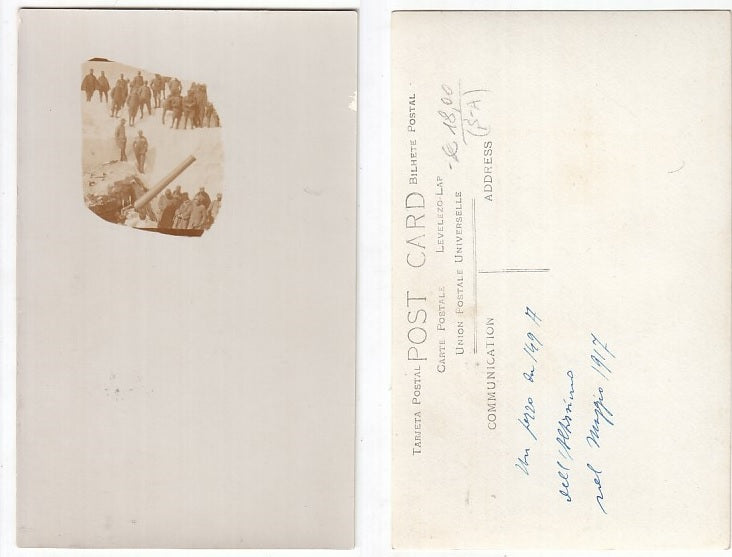 TARJETA POSTAL POST CARD BILHETE POSTAL
CARTE POSTALE LEVELEZO-LAP
UNION POSTALE UNIVERSELLE
18,00
(B-A)
COMMUNICATION ADDRESS
Un pezzo da 149 A
dell'Altissimo
nel Maggio 1917